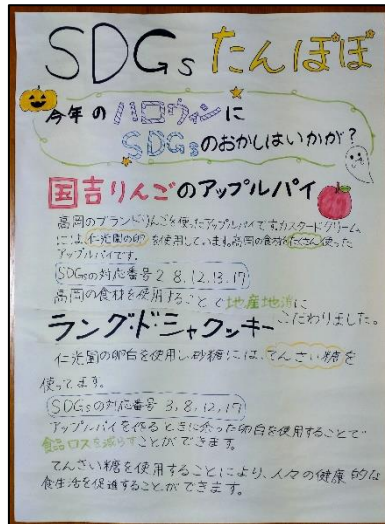 SDGs たんぽぽ
今年のハロウィンに
SDGsのおかしはいかが？
国吉りんごのアップルパイ
高岡のブランドりんごを使ったアップルパイです。カスタードクリーム
には、仁光園の卵を使用しています。高岡の食材をたくさん使った
アップルパイです。
SDGsの対応番号 2 8, 12, 13, 17
高岡の食材を使用することで地産地消に
こだわりました。
ラング・ド・シャクッキー
仁光園の卵白を使用し、砂糖には、てんさい糖を
使ってます。
SDGsの対応番号 3, 8, 12, 17
アップルパイを作るときに余った卵白を使用することで
食品ロスを減らすことができます。
てんさい糖を使用することにより、人々の健康的な
食生活を促進することができます。